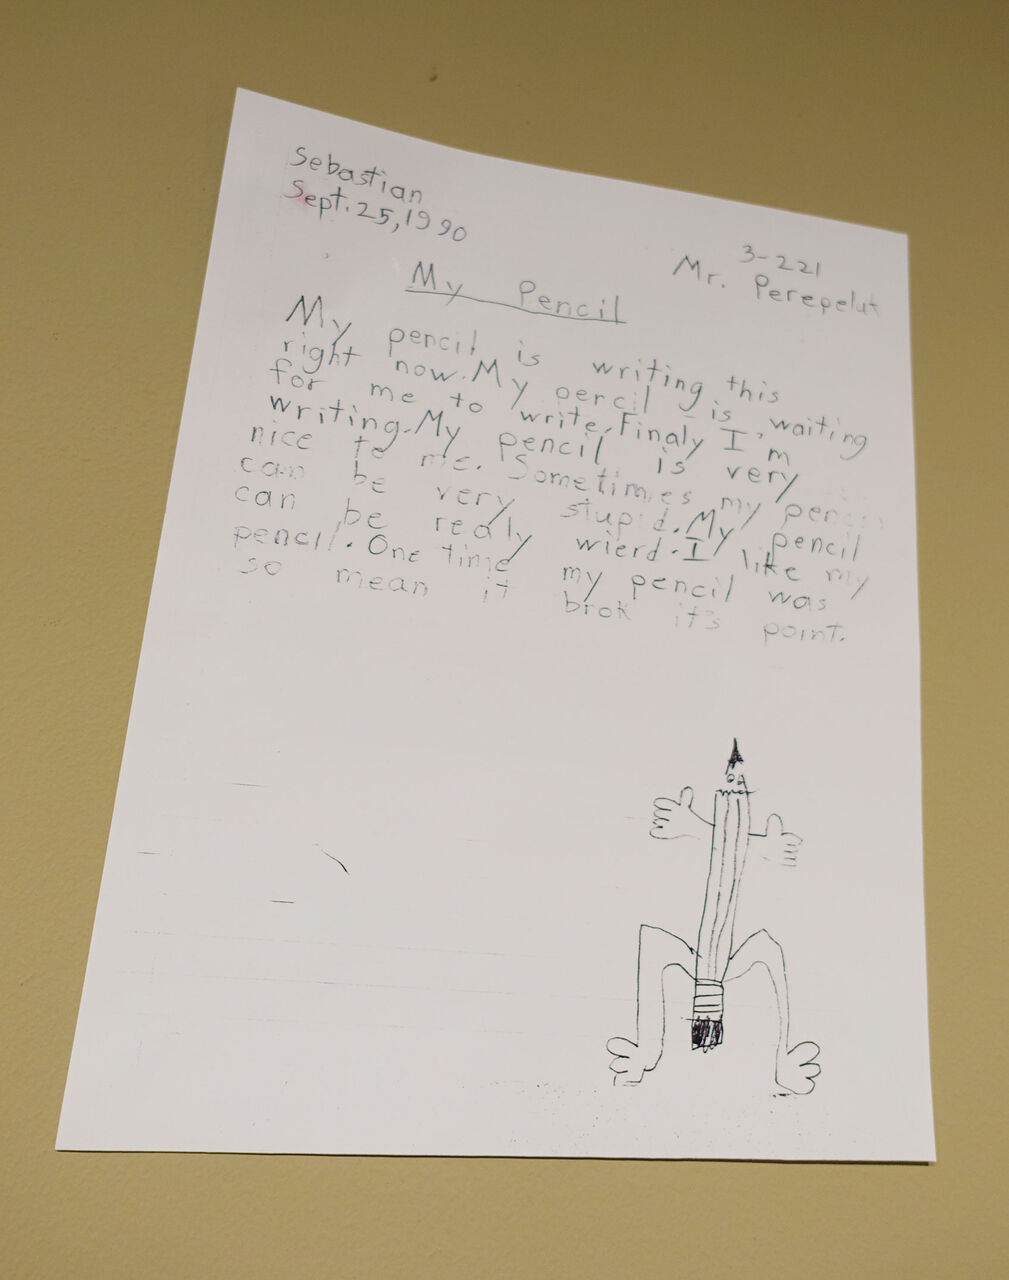 Sebastian
Sept. 25, 1990
3-221
Mr. Perepelut
My Pencil
My pencil is writing this
right now. My percil is waiting
for me to write. Finaly I'm
writing. My pencil is very
nice to me. Sometimes my pencil
can be very stupid. My pencil
can be realy wierd. I like my
pencil. One time my pencil was
so mean it brok it's point.